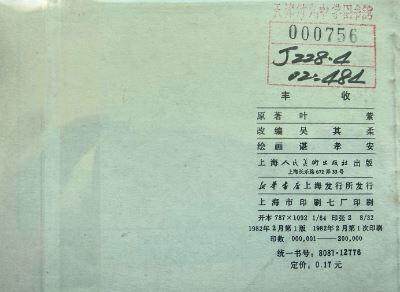 000756
J228·4
02=484
丰 收
原著 叶 紫
改编 吴 其 柔
绘画 谌 孝 安
上海人民美术出版社出版
上海长乐路672弄33号
新华书店上海发行所发行
上海市印刷七厂印刷
开本 787×1092 1/64 印张 2 8/32
1982年2月第1版 1982年2月第1次印刷
印数 000,001——200,000
统一书号: 8081·12776
定价: 0.17 元